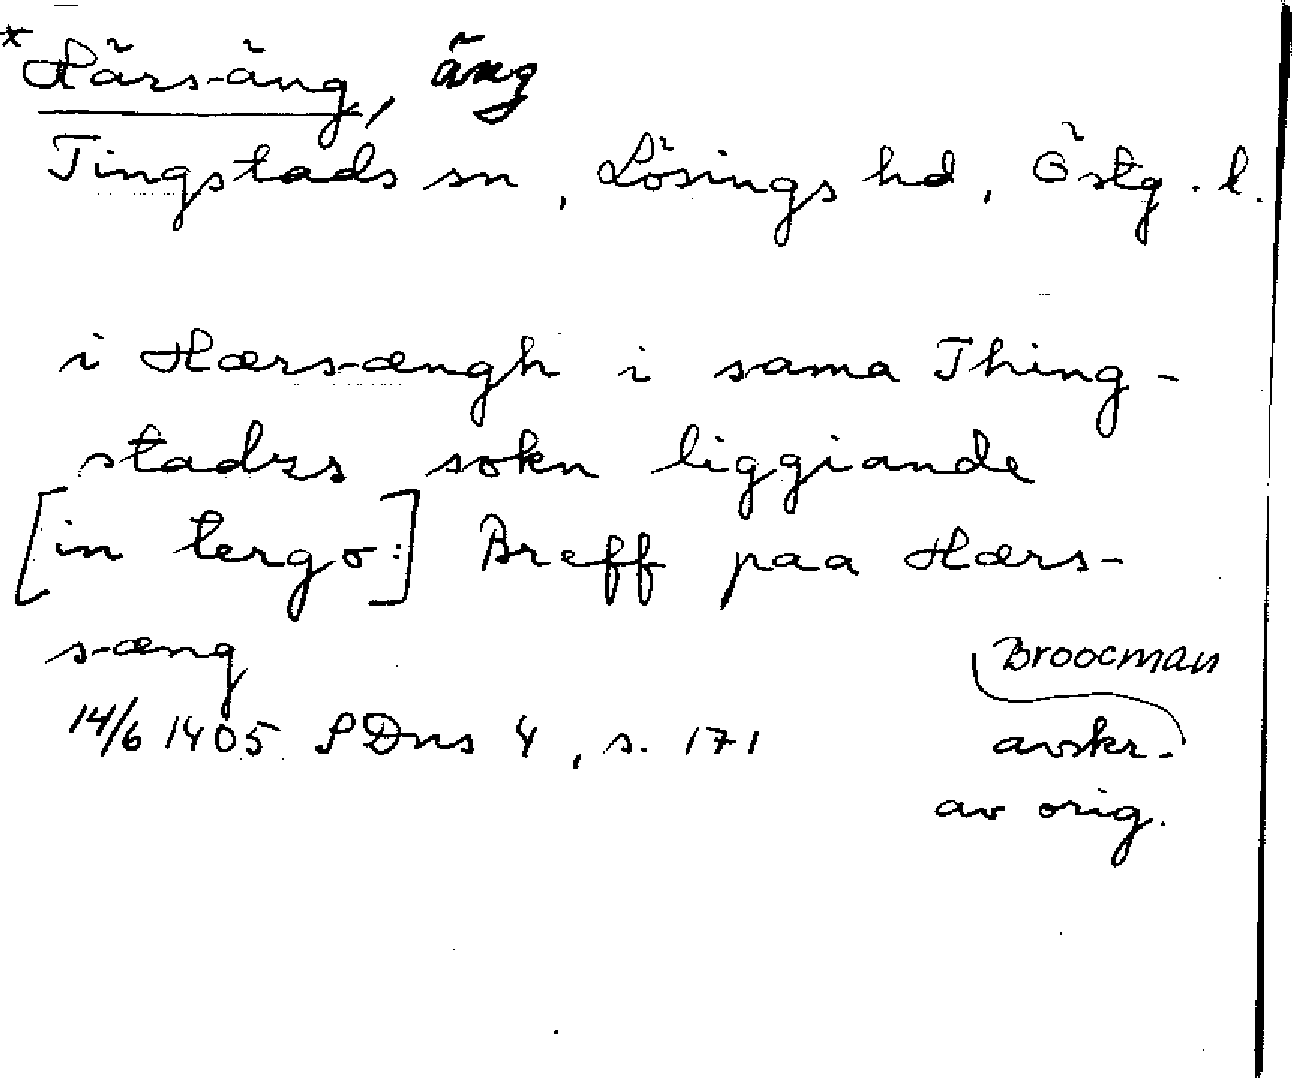 *Härs-äng, äng
Tingstads sn, Lösings hd, Östg. l.
i Hærs-ængh i sama Thing-
stadzs sokn liggiande
[in tergo:] Breff paa Hærs-
s-æng
Broocman
14/6 1405 SDns 4, s. 171 avskr.
av orig.